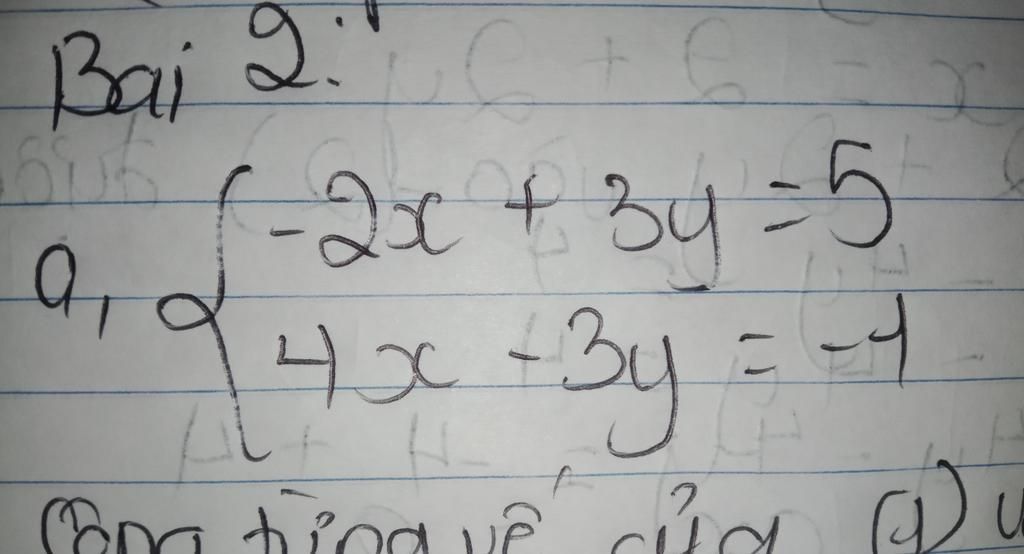 Bai 2:
a, { -2x + 3y = 5
4x - 3y = -1
Cộng từng vế của (1)